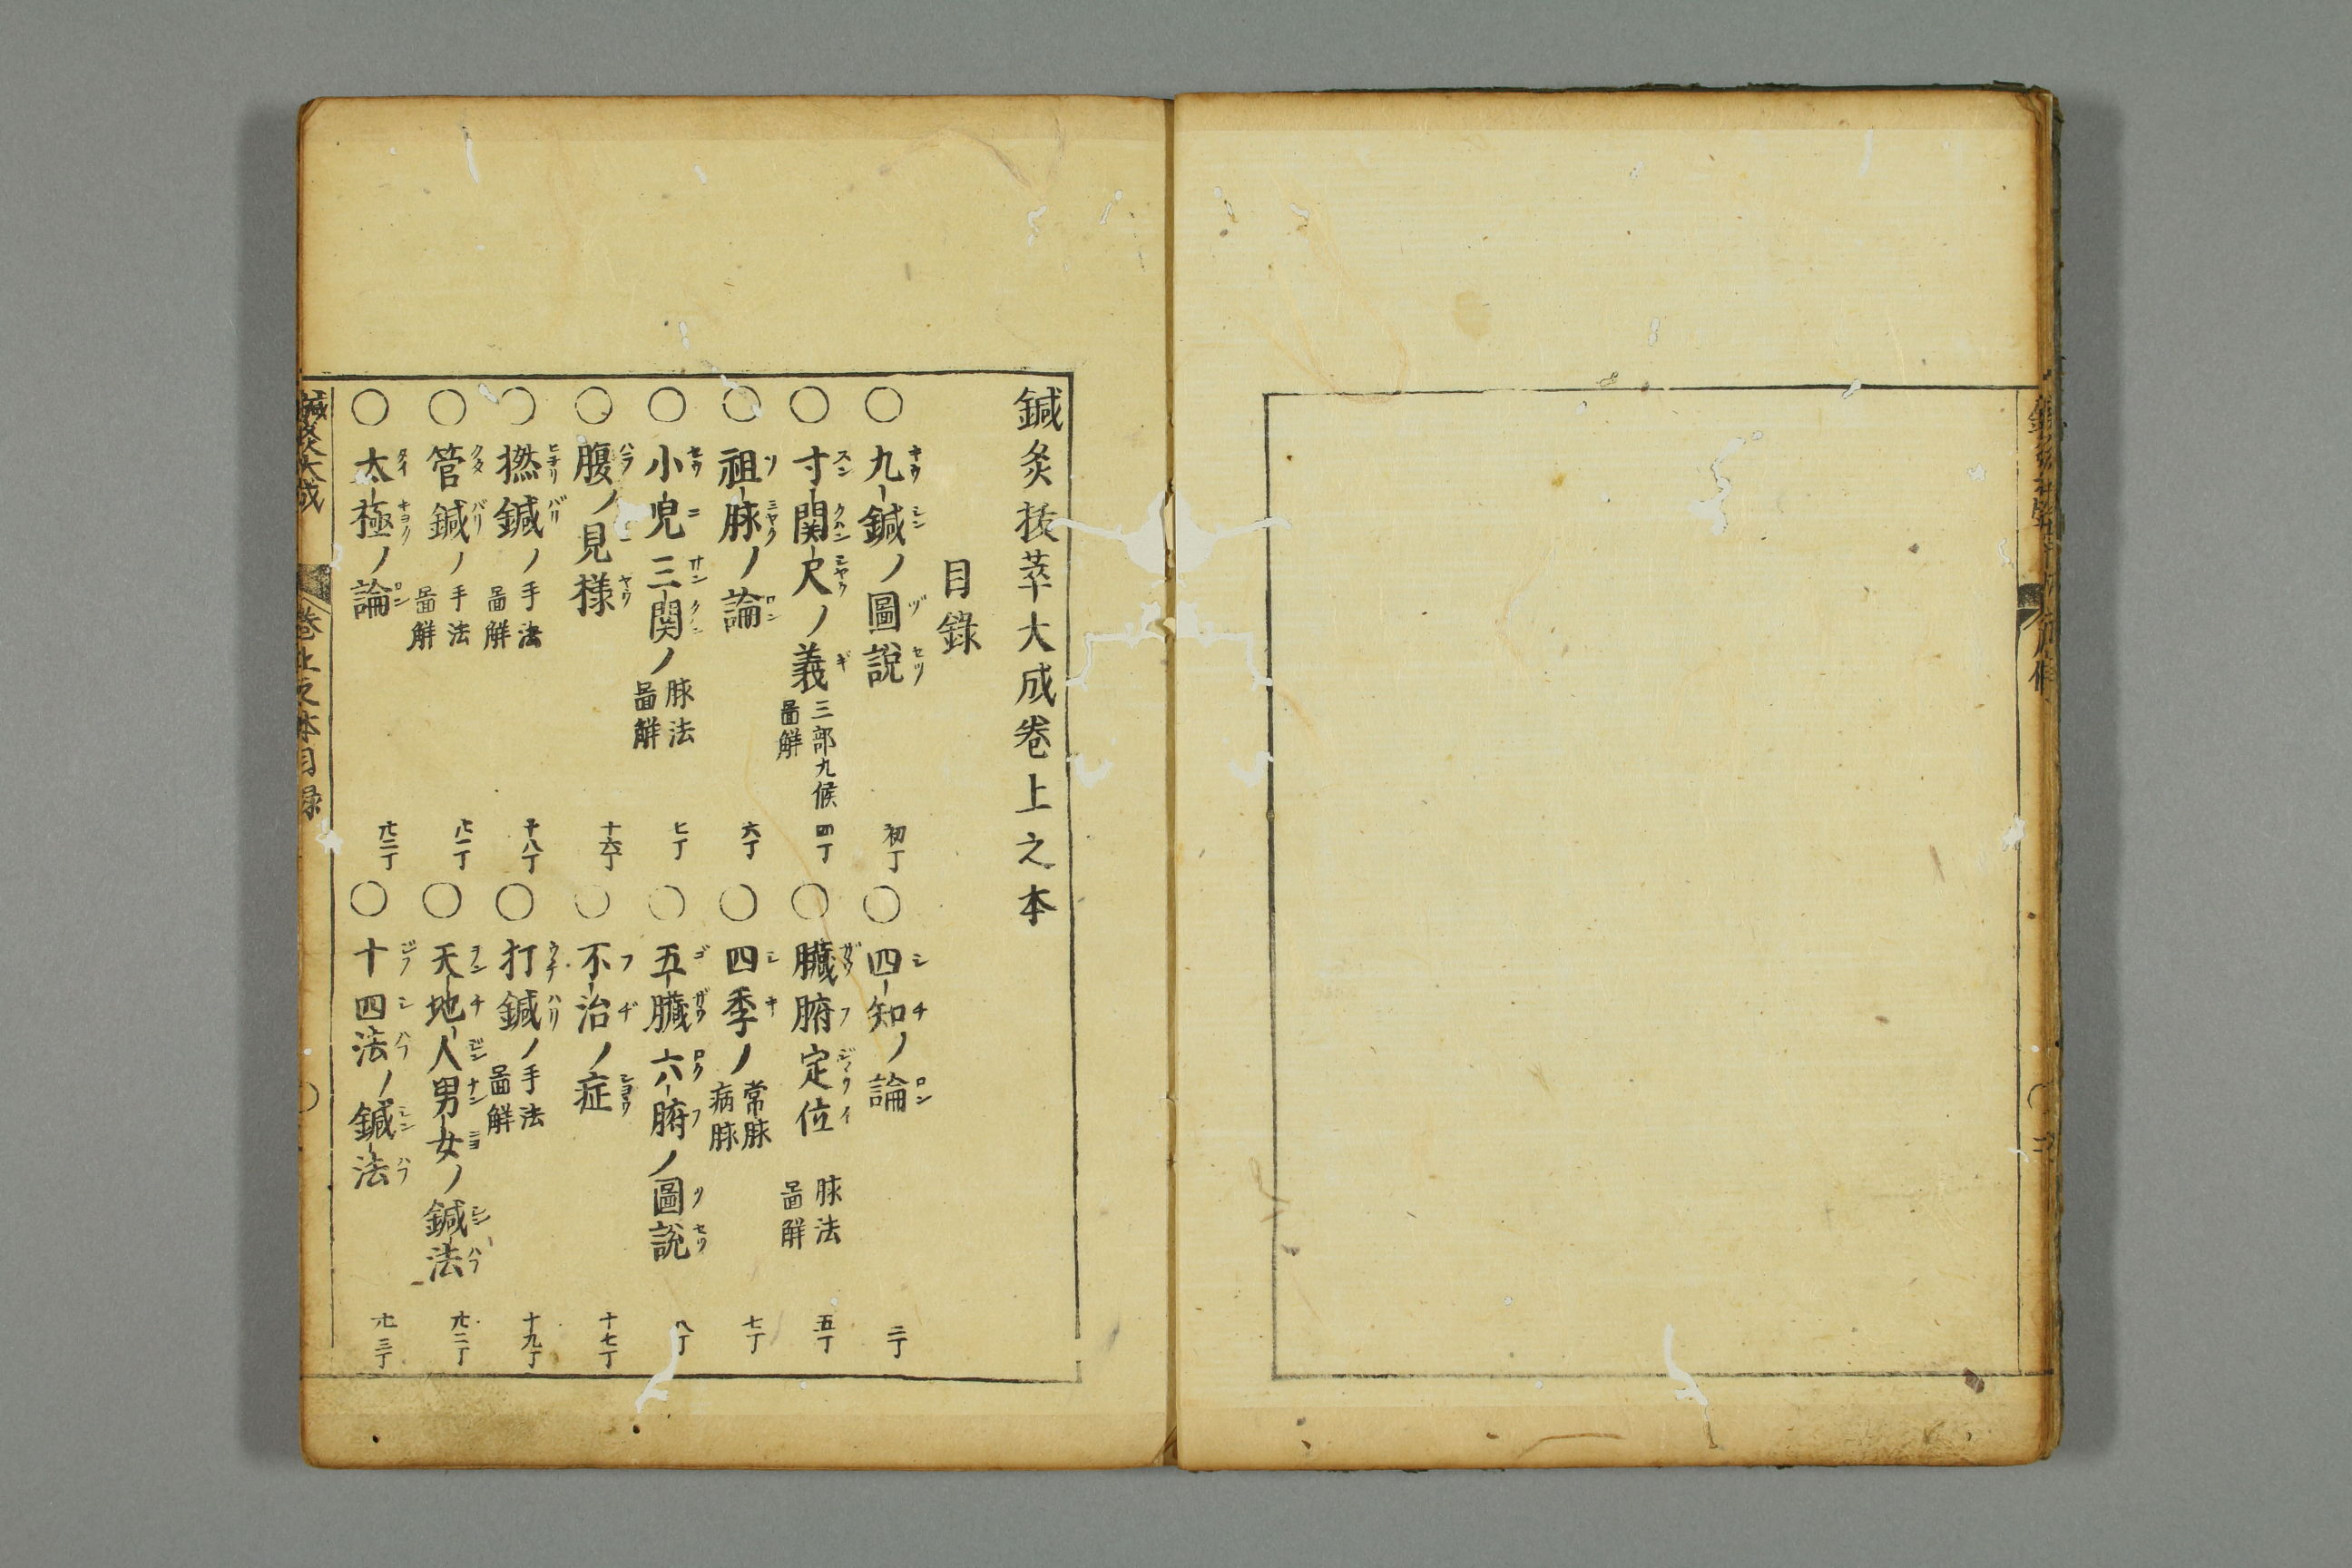 鍼灸抜萃大成卷上之本
目錄
○九鍼ノ圖說 初丁
○四知ノ論 二丁
○寸関尺ノ義 三部九候 啚觧 四丁
○臟腑定位 脉法 啚觧 五丁
○祖脉ノ論 六丁
○四季ノ 常脉 病脉 七丁
○小兒三関ノ 脉法 啚觧 七丁
○五臟六腑ノ圖說 八丁
○腹ノ見様 十六丁
○不治ノ症 十七丁
○撚鍼ノ 手法 啚觧 十八丁
○打鍼ノ 手法 啚觧 十九丁
○管鍼ノ 手法 啚觧 廿一丁
○天地人男女ノ鍼法 廿二丁
○太極ノ論 廿二丁
○十四法ノ鍼法 廿三丁
鍼灸大成 卷上之本目録